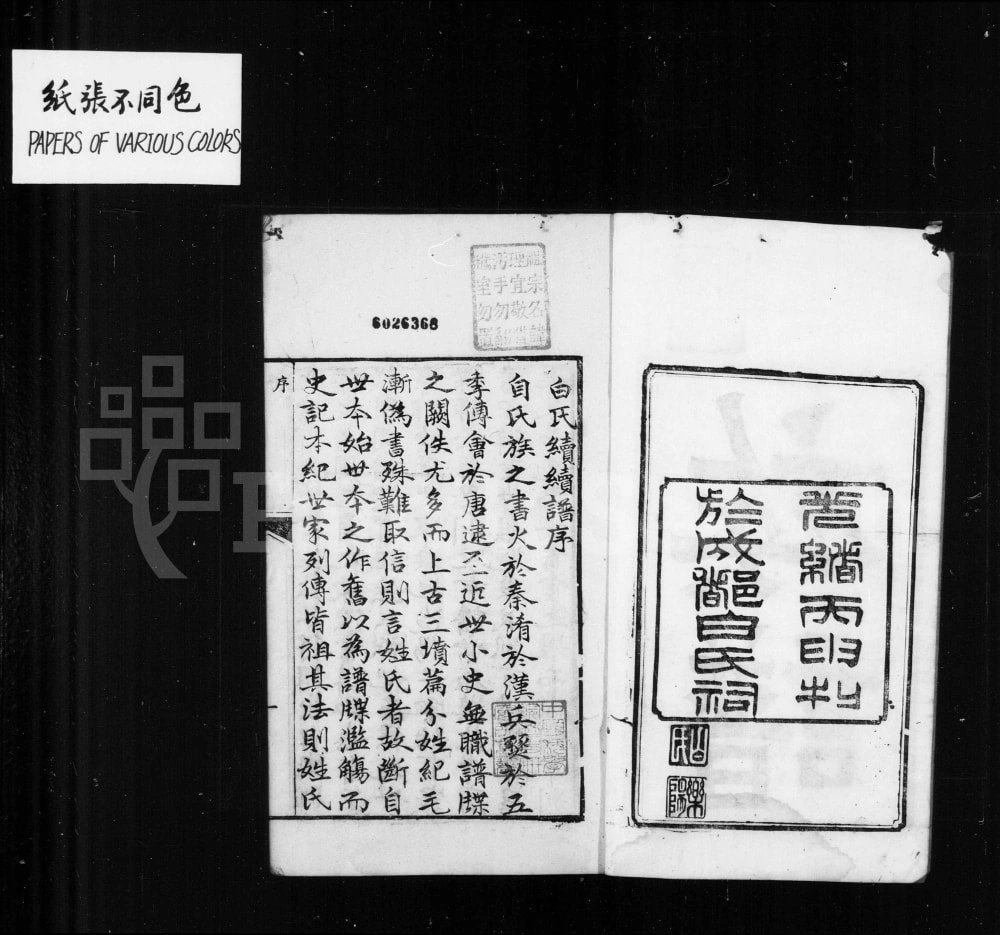 紙張不同色
PAPERS OF VARIOUS COLORS
6026368
光緒丙申刊
於成都白氏祠
白氏續續譜序
自氏族之書火於秦淆於漢兵燹於五
季傅會於唐逮至近世小史無職譜牒
之闕佚尤多而上古三墳篇分姓紀毛
漸偽書殊難取信則言姓氏者故斷自
世本始世本之作舊以為譜牒濫觴而
史記本紀世家列傳皆祖其法則姓氏
序